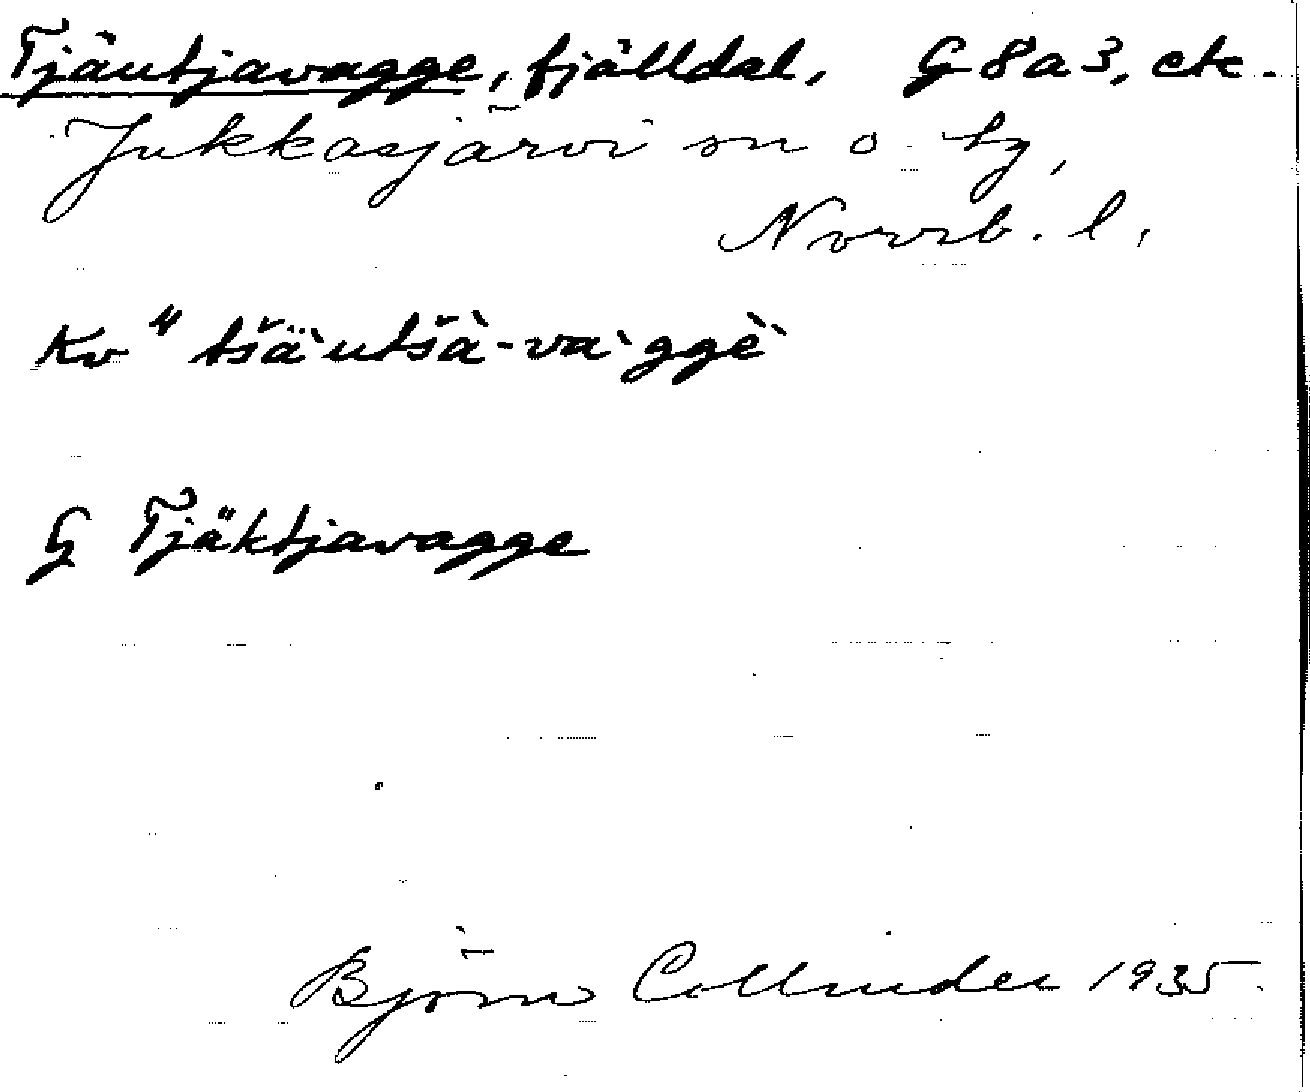 Tjäutjavagge, fjälldal, G 8 a 3, etc.
Jukkasjärvi sn o. tg,
Norrb. l.
Kv " tšä̀utšà-và̀ggè
G Tjäktjavagge
Björn Collinder 1935.